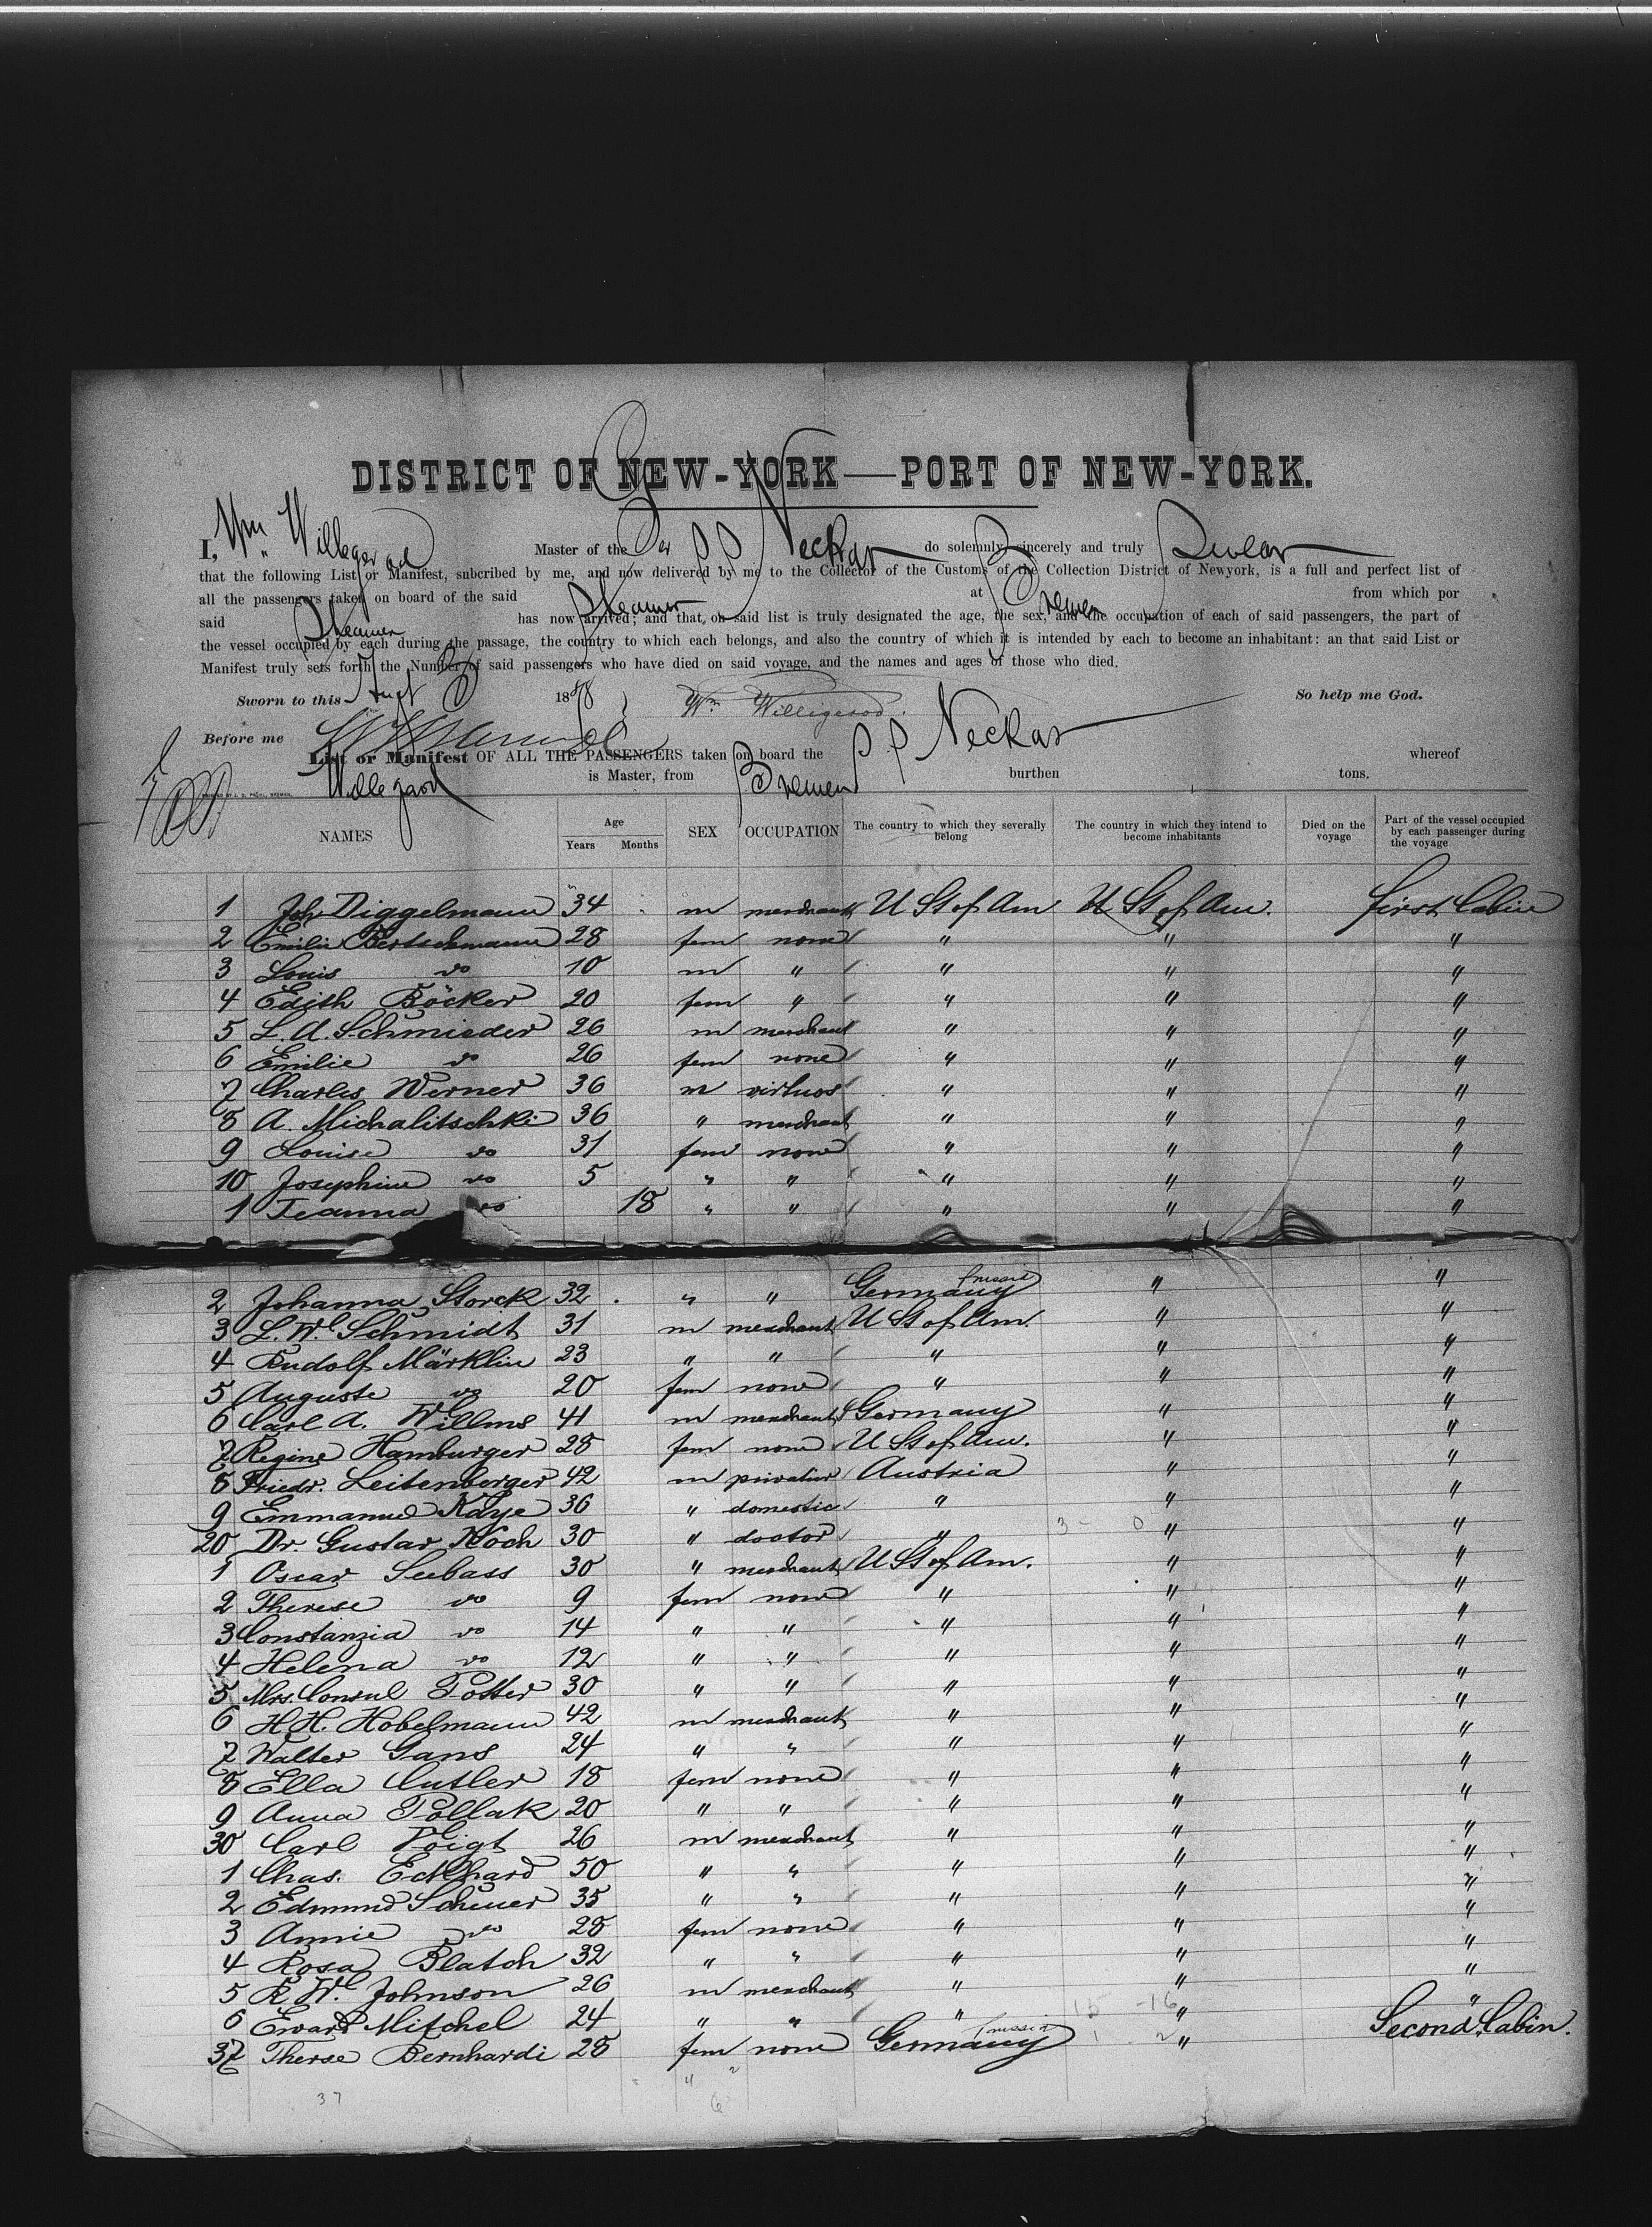 DISTRICT OF NEW-YORK—PORT OF NEW-YORK.
I, Wm. Willegerod Master of the Ger SS Neckar do solemnly, sincerely and truly Swear
that the following List or Manifest, subcribed by me, and now delivered by me to the Collector of the Customs of the Collection District of Newyork, is a full and perfect list of
all the passengers taken on board of the said Steamer at Bremen from which por
said Steamer has now arrived; and that on said list is truly designated the age, the sex, and the occupation of each of said passengers, the part of
the vessel occupied by each during the passage, the country to which each belongs, and also the country of which it is intended by each to become an inhabitant: an that said List or
Manifest truly sets forth the Number of said passengers who have died on said voyage, and the names and ages of those who died.
Sworn to this Augt 1878 Wm Willigerod. So help me God.
Before me
List or Manifest OF ALL THE PASSENGERS taken on board the SS Neckar whereof
Willegarod is Master, from Bremen burthen tons.
NAMES Age Years Months SEX OCCUPATION The country to which they severally belong The country in which they intend to become inhabitants Died on the voyage Part of the vessel occupied by each passenger during the voyage
1 Joh Diggelmann 34 m merchant U St of Am U St of Am. first Cabin
2 Emilie Bertschmann 28 fem none " " "
3 Louis do 10 m " " " "
4 Edith Böcker 20 fem " " " "
5 L. A. Schmieder 26 m merchant " " "
6 Emilie do 26 fem none " " "
7 Charles Werner 36 m virtuos " " "
8 A. Michalitschke 36 " merchant " " "
9 Louise do 31 fem none " " "
10 Josephine do 5 " " " " "
1 Jeanna do 18 " " " " "
2 Johanna Storck 32 " " Germany Prussia " "
3 L. W. Schmidt 31 m merchant U St of Am. " "
4 Rudolf Märklin 23 " " " " "
5 Auguste do 20 fem none " " "
6 Carl A. Willms 41 m merchant Germany " "
7 Regine Hamburger 28 fem none U St of Am. " "
8 Friedr. Leitenberger 42 m privatier Austria " "
9 Emmanuel Kaye 36 " domestic " " "
20 Dr. Gustav Koch 30 " doctor " " "
1 Oscar Seebass 30 " merchant U St of Am. " "
2 Therese do 9 fem none " " "
3 Constanzia do 14 " " " " "
4 Helena do 12 " " " " "
5 Mrs. Consul Potter 30 " " " " "
6 H. H. Hobelmann 42 m merchant " " "
7 Walter Gans 24 " " " " "
8 Ella Cutler 18 fem none " " "
9 Anna Pollak 20 " " " " "
30 Carl Voigt 26 m merchant " " "
1 Chas. Eckhard 50 " " " " "
2 Edmund Scheuer 35 " " " " "
3 Annie do 28 fem none " " "
4 Rosa Blatch 32 " " " " "
5 R. W. Johnson 26 m merchant " " "
6 Eward Mitchel 24 " " " " "
37 Therse Bernhardi 28 fem none Germany Prussia " Second Cabin.
37 6